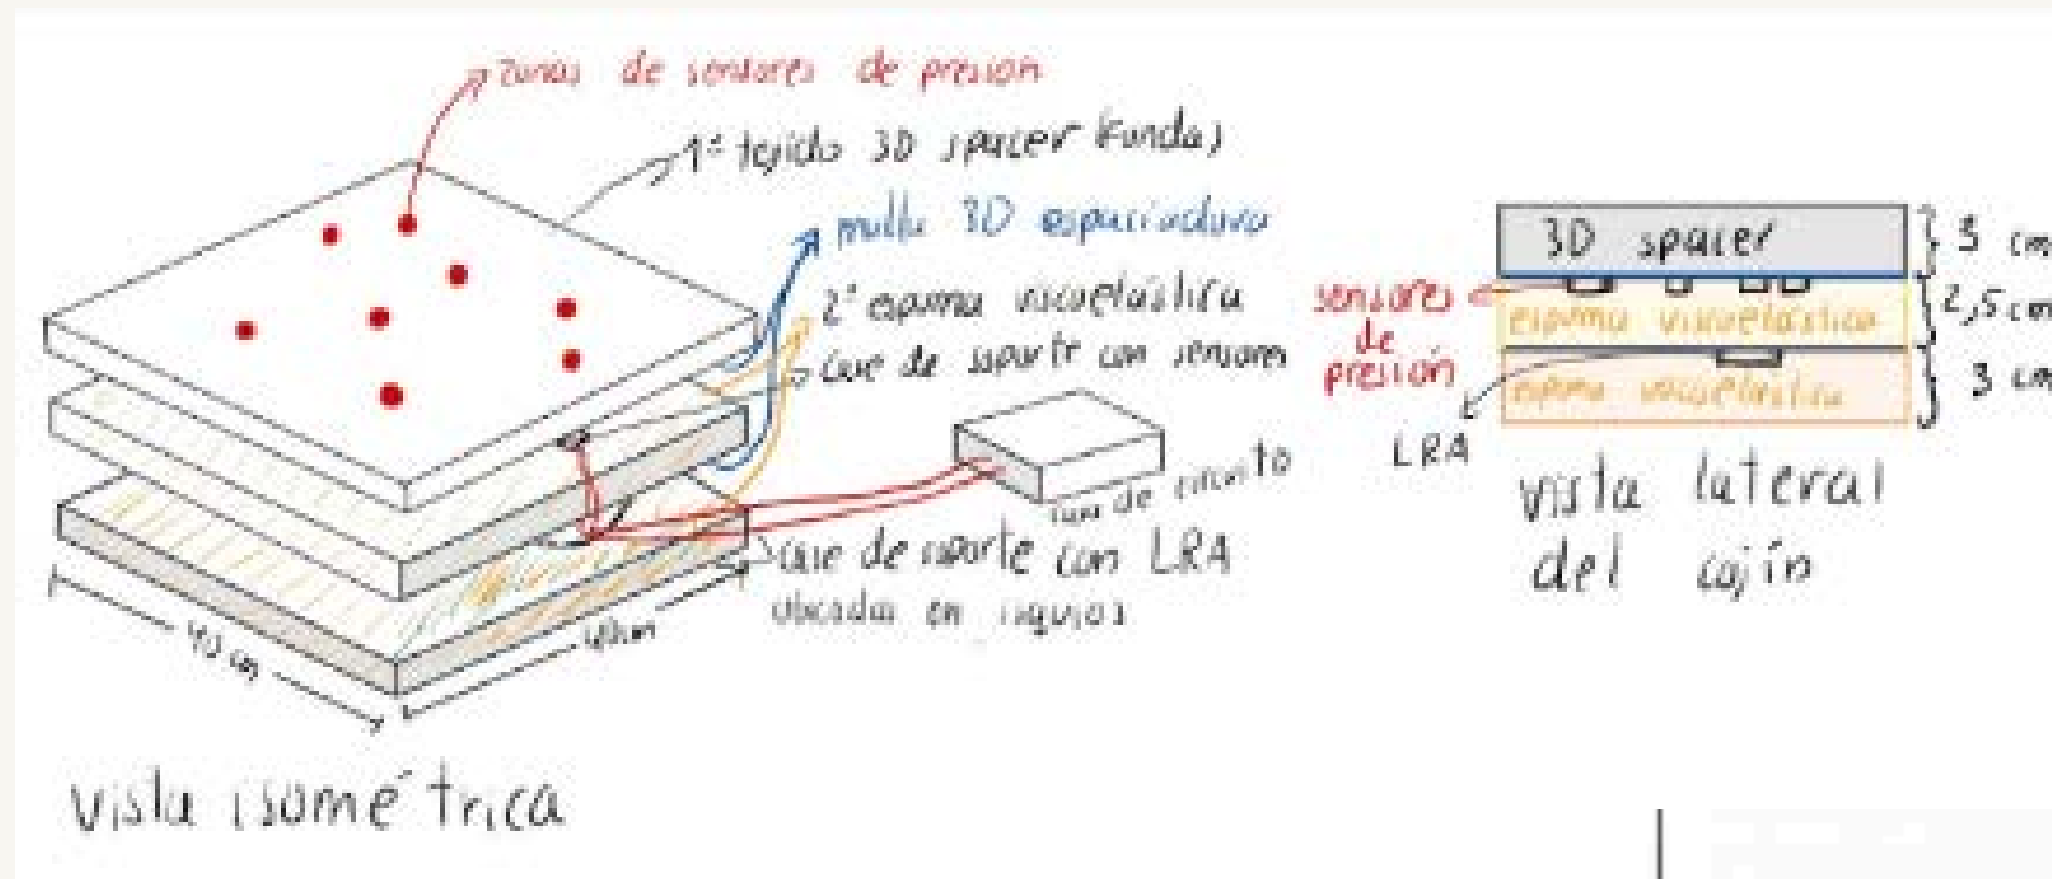 zonas de sensores de presión
1º tejido 3D spacer (Funda)
malla 3D espaciadora
2º espuma viscoelástica
case de soporte con sensores
case de circuito
case de soporte con LRA
ubicadas en isquios
40 cm
40cm
vista isométrica
3D spacer
3 cm
sensores
de
presión
espuma viscoelástica
2,5 cm
espuma viscoelástica
3 cm
LRA
vista lateral
del cojín